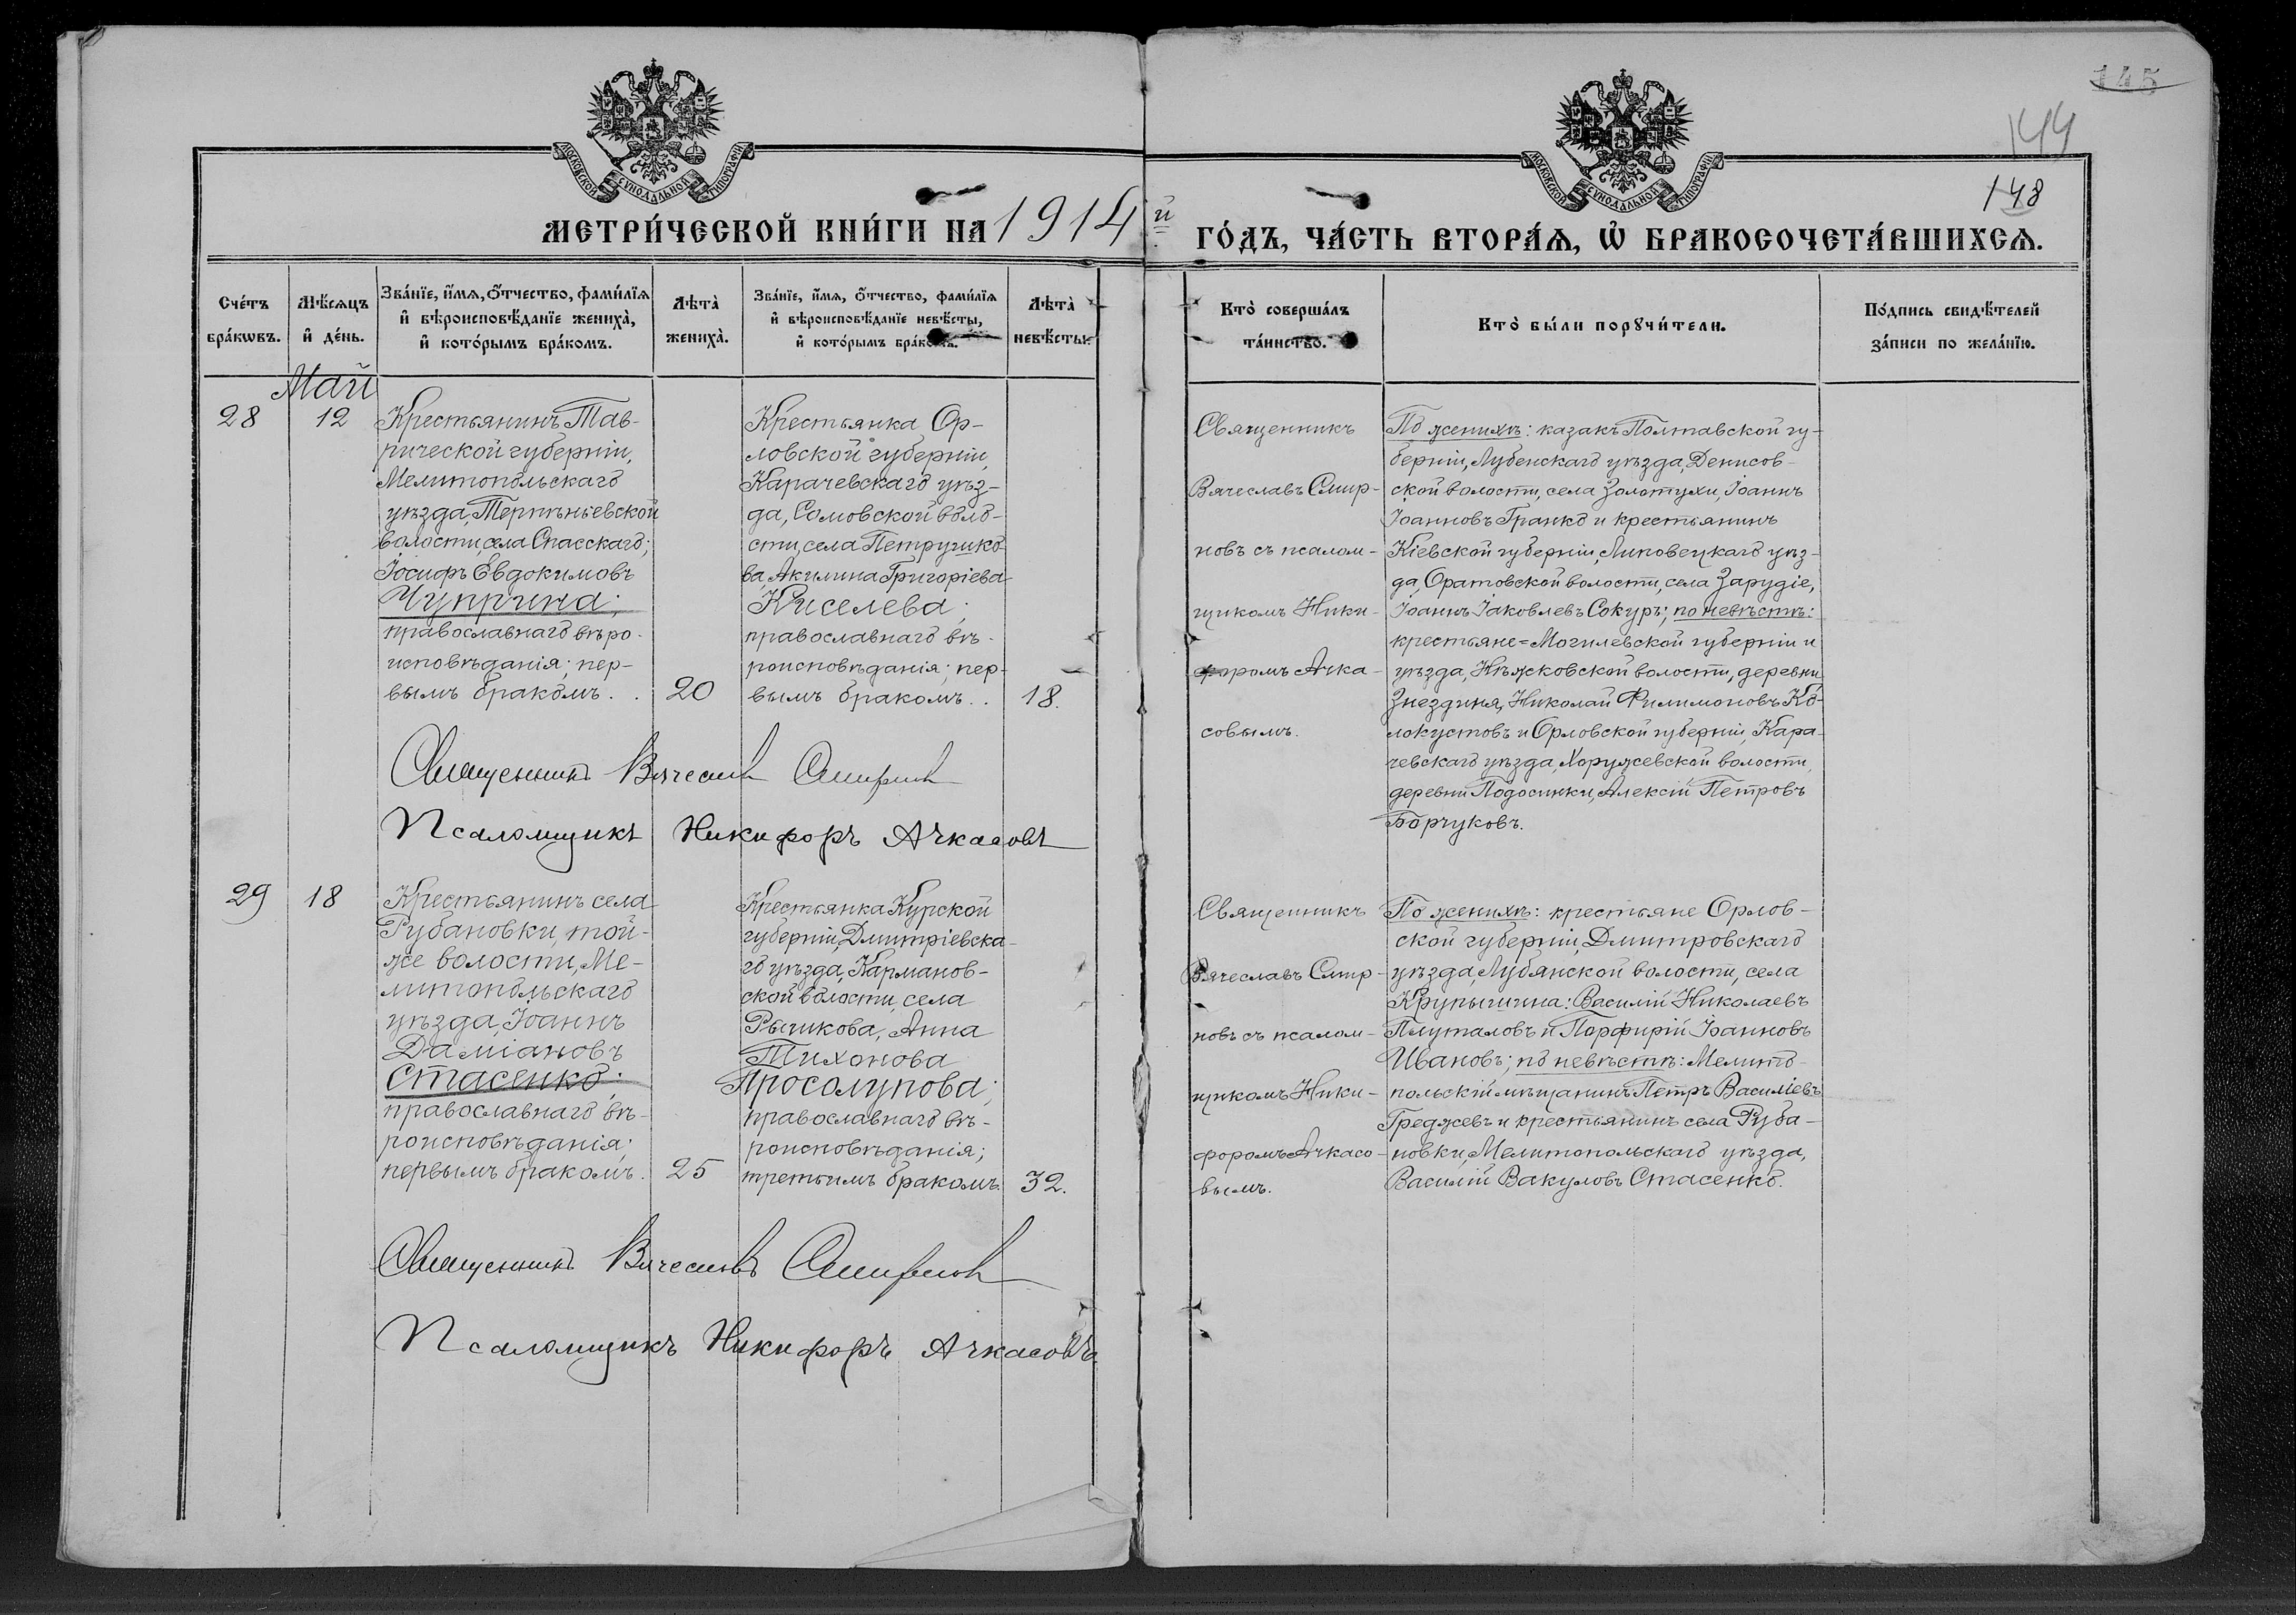 145
144
148
МОСКОВСКОЙ СУНОДАЛЬНОЙ ТИПОГРАФІИ
МОСКОВСКОЙ СУНОДАЛЬНОЙ ТИПОГРАФІИ
МЕТРИ́ЧЕСКОЙ КНИ́ГИ НА 1914 й ГО́ДЪ, ЧА́СТЬ ВТОРА́Я, Ѡ БРАКОСОЧЕТА́ВШИХСЯ.
Сче́тъ бра́кѡвъ.
Мѣ́сяцъ и҆ де́нь.
Зва́нїе, и҆́мя, ѻ҆́тчество, фами́лїя
и҆ вѣроисповѣ́данїе женихà,
и҆ кото́рымъ бра́комъ.
Лѣтà женихà.
Зва́нїе, и҆́мя, ѻ҆́тчество, фами́лїя
и҆ вѣроисповѣ́данїе невѣ́сты,
и҆ кото́рымъ бра́комъ.
Лѣтà невѣ́сты.
Ктò соверша́лъ та́инство.
Ктò бы́ли порꙋчи́тели.
По́дпись свидѣ́телей за́писи по жела́нїю.
Май
28
12
Крестьянинъ Тав-
рической губерніи,
Мелитопольскаго
уѣзда, Терпѣньевской
волости, села Спасскаго;
Іосифъ Евдокимовъ
Чуприна;
православнаго вѣро-
исповѣданія; пер-
вымъ бракомъ. .
20
Крестьянка Ор-
ловской губерніи,
Карачевскаго уѣз-
да, Сомовской воло-
сти, села Петрушко-
ва, Акилина Григоріева
Киселева;
православнаго вѣ-
роисповѣданія; пер-
вымъ бракомъ. .
18.
Священникъ
Вячеславъ Смир-
новъ съ псалом-
щикомъ Ники-
форомъ Ачка-
совымъ.
По женихѣ: казакъ Полтавской гу-
берніи, Лубенскаго уѣзда, Денисов-
ской волости, села Золотухи, Іоаннъ
Іоанновъ Гранко и крестьянинъ
Кіевской губерніи, Липовецкаго уѣз-
да, Оратовской волости, села Зарудіе,
Іоаннъ Іаковлевъ Сокуръ; по невѣстѣ:
крестьяне = Могилевской губерніи и
уѣзда, Нѣжковской волости, деревни
Николай Филимоновъ Ко-
локустовъ и Орловской губерніи, Кара-
чевскаго уѣзда, Хоружевской волости,
деревни Подосинки, Алексій Петровъ
Борчуковъ.
Священникъ Вячеславъ Смирновъ
Псаломщикъ Никифоръ Ачкасовъ
29
18
Крестьянинъ села
Рубановки, той-
же волости, Ме-
литопольскаго
уѣзда, Іоаннъ
Даміановъ
Стасенко;
православнаго вѣ-
роисповѣданія;
первымъ бракомъ.
25
Крестьянка Курской
губерніи, Дмитріевска-
го уѣзда, Карманов-
ской волости, села
Рышкова, Анна
Тихонова
Просолупова;
православнаго вѣ-
роисповѣданія;
третьимъ бракомъ.
32.
Священникъ
Вячеславъ Смир-
новъ съ псалом-
щикомъ Ники-
форомъ Ачкасо-
вымъ.
По женихѣ: крестьяне Орлов-
ской губерніи, Дмитровскаго
уѣзда, Лубянской волости, села
Крупышина: Василій Николаевъ
Плуталовъ и Порфирій Іоанновъ
Ивановъ; по невѣстѣ: Мелито-
польскій мѣщанинъ Петръ Василіевъ
Греджевъ и крестьянинъ села Руба-
новки, Мелитопольскаго уѣзда,
Василій Вакуловъ Стасенко.
Священникъ Вячеславъ Смирновъ
Псаломщикъ Никифоръ Ачкасовъ